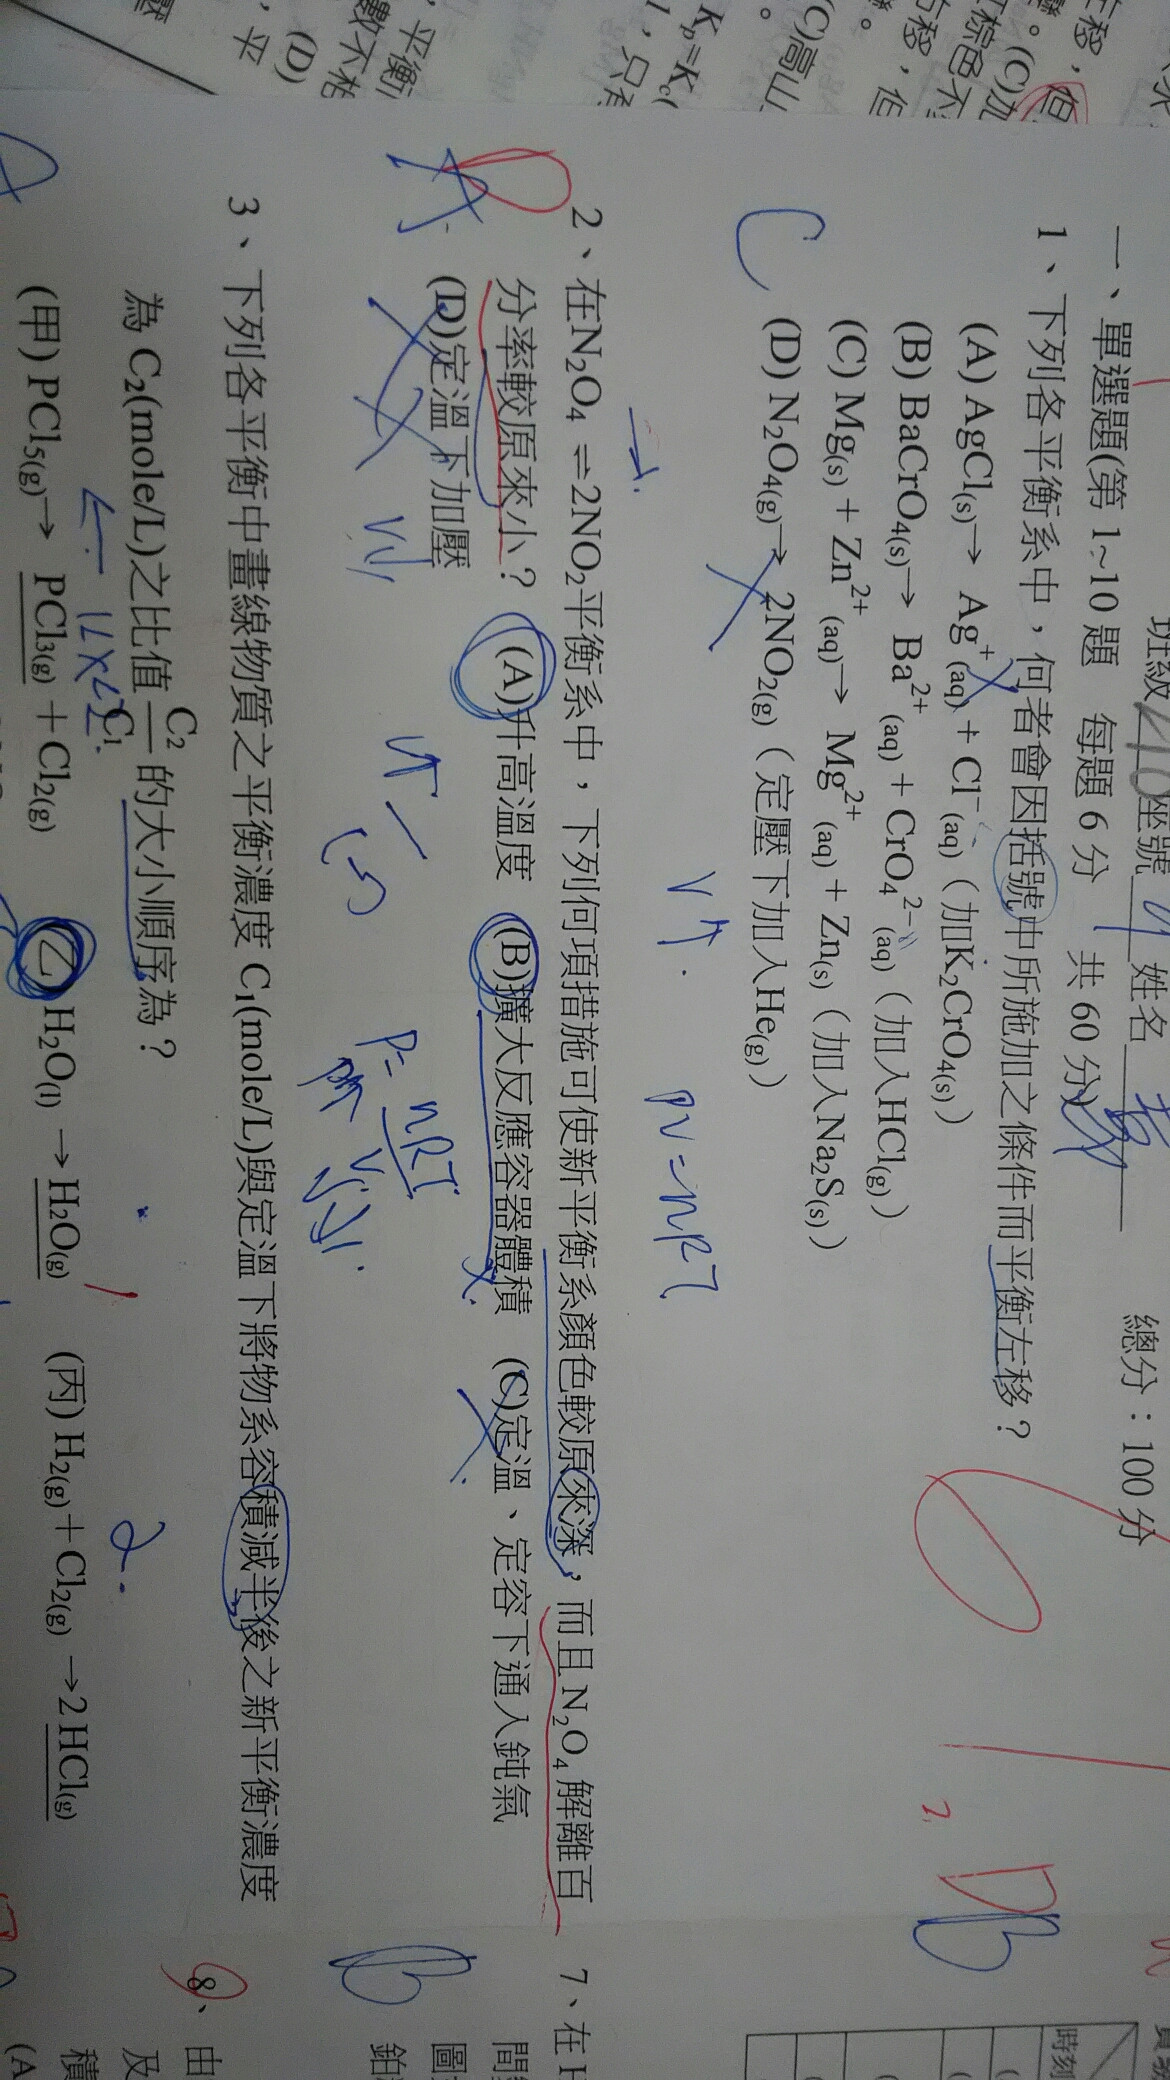 班級 坐號 姓名 總分：100分
一、單選題(第 1~10題 每題 6 分 共 60 分)
1、下列各平衡系中，何者會因括號中所施加之條件而平衡左移？
(A) AgCl(s)→ Ag⁺(aq) + Cl⁻(aq)（加K₂CrO₄(s)）
(B) BaCrO₄(s)→ Ba²⁺(aq) + CrO₄²⁻(aq)（加入HCl(g)）
(C) Mg(s) + Zn²⁺(aq)→ Mg²⁺(aq) + Zn(s)（加入Na₂S(s)）
(D) N₂O₄(g)→ 2NO₂(g)（定壓下加入He(g)）
C
V↑.
PV=nRT
2、在N₂O₄ ⇌2NO₂平衡系中，下列何項措施可使新平衡系顏色較原來深，而且 N₂O₄ 解離百
分率較原來小？ (A)升高溫度 (B)擴大反應容器體積 (C)定溫、定容下通入鈍氣
(D)定溫下加壓
A
P= nRT
V
3、下列各平衡中畫線物質之平衡濃度 C₁(mole/L)與定溫下將物系容積減半後之新平衡濃度
為 C₂(mole/L)之比值 C₂/C₁ 的大小順序為？
1<X<2
1
2.
(甲) PCl₅(g)→ PCl₃(g) + Cl₂(g) (乙) H₂O(l) →H₂O(g) (丙) H₂(g)+ Cl₂(g) →2 HCl(g)
2, D
B
時刻
7、在 H
間
圖
鉑
B
8、由
及
積
(A
右移，但
。(C)加
棕色不
右移，但
(C)高山
Kp=Kc(
，只
，平衡
數不
(D)
，平
壓